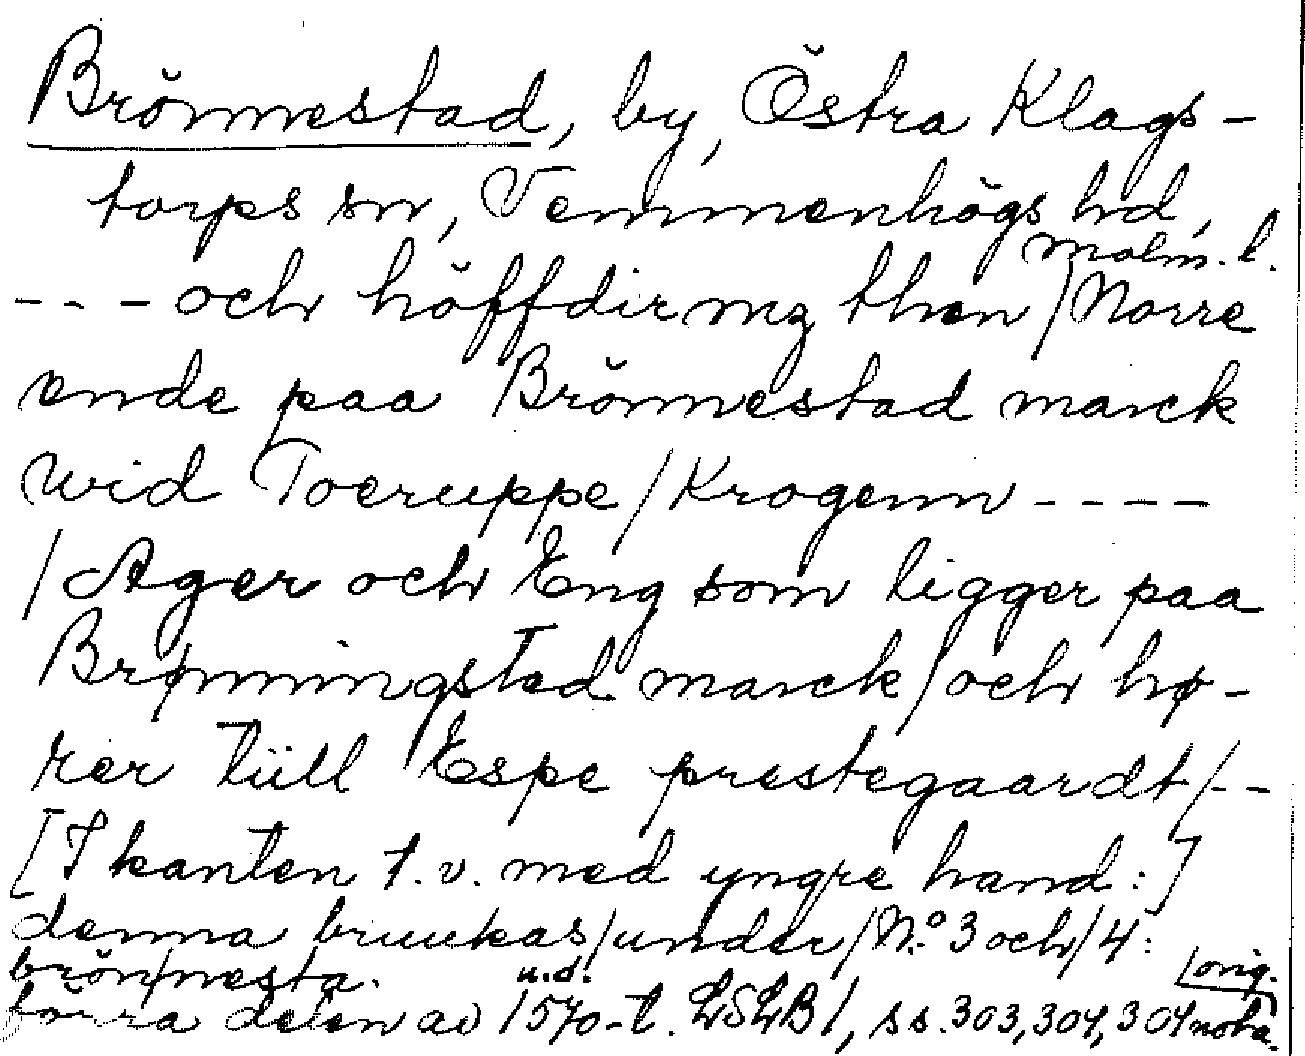 Brönnestad, by, Östra Klags-
torps sn, Vemmenhögs hd,
Malm. l.
- - - och höffdir mz then / Norre
ende paa Brönnestad marck
wid Toeruppe / Krogenn - - - -
/ Ager och Eng som ligger paa
Brønningstad marck / och hø-
rer tüll Espe prestegaardt / - -
[I kanten t.v. med yngre hand:]
denna bruukas / under / N:o 3 och / 4:
brön/nesta.
förra delen av 1570-t. LSLB 1, ss. 303, 304, 304 nota.
u.d.
/ orig.